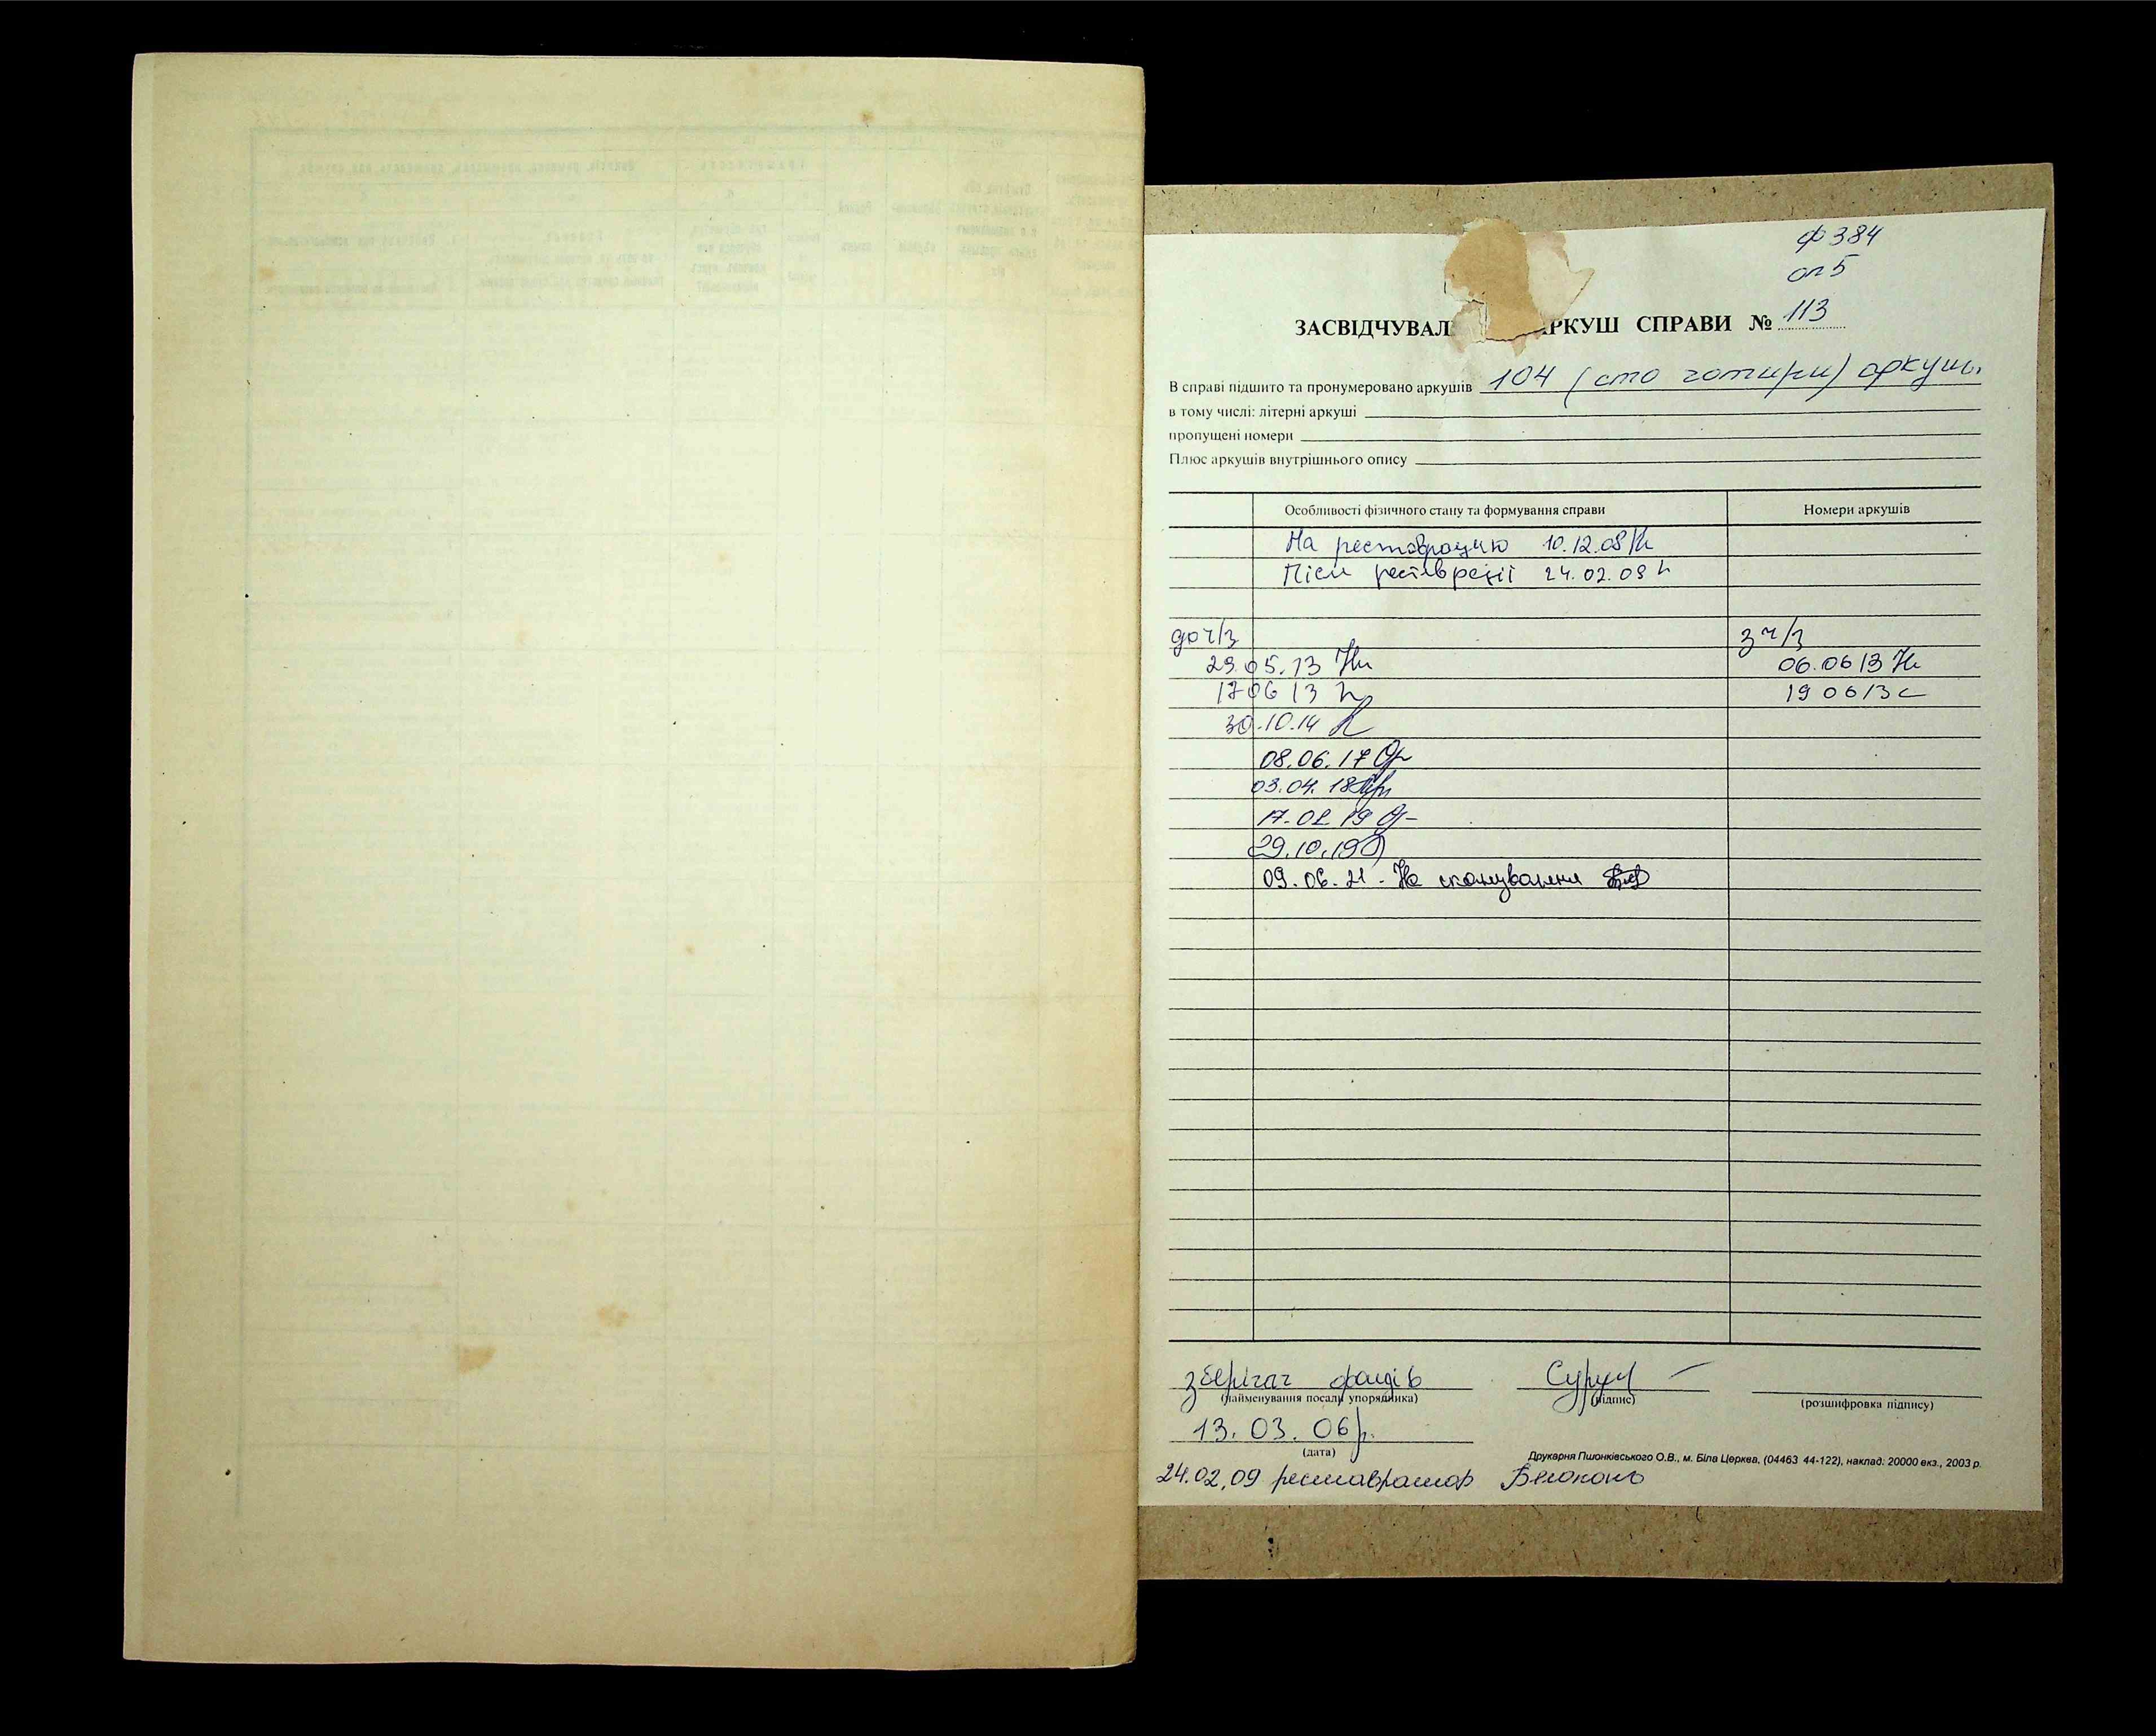 ф 384
оп 5
ЗАСВІДЧУВАЛ АРКУШ СПРАВИ № 113
В справі підшито та пронумеровано аркушів 104 (сто чотири) аркуш.
в тому числі: літерні аркуші
пропущені номери
Плюс аркушів внутрішнього опису
Особливості фізичного стану та формування справи Номери аркушів
На реставрацию 10.12.08
Після реставрації 24.02.09
до ч/з з ч/з
29.05.13 06.06 13
17 06 13 19 06 13
30.10.14
08.06.17
03.04.18
17.02 19
29.10.19
09.06.21 - На сканування
зберігач фондів
(найменування посади упорядника) (підпис) (розшифровка підпису)
13.03.06р.
(дата)
Друкарня Пшонківського О.В., м. Біла Церква, (04463 44-122), наклад: 20000 екз., 2003 р.
24.02,09 реставратор